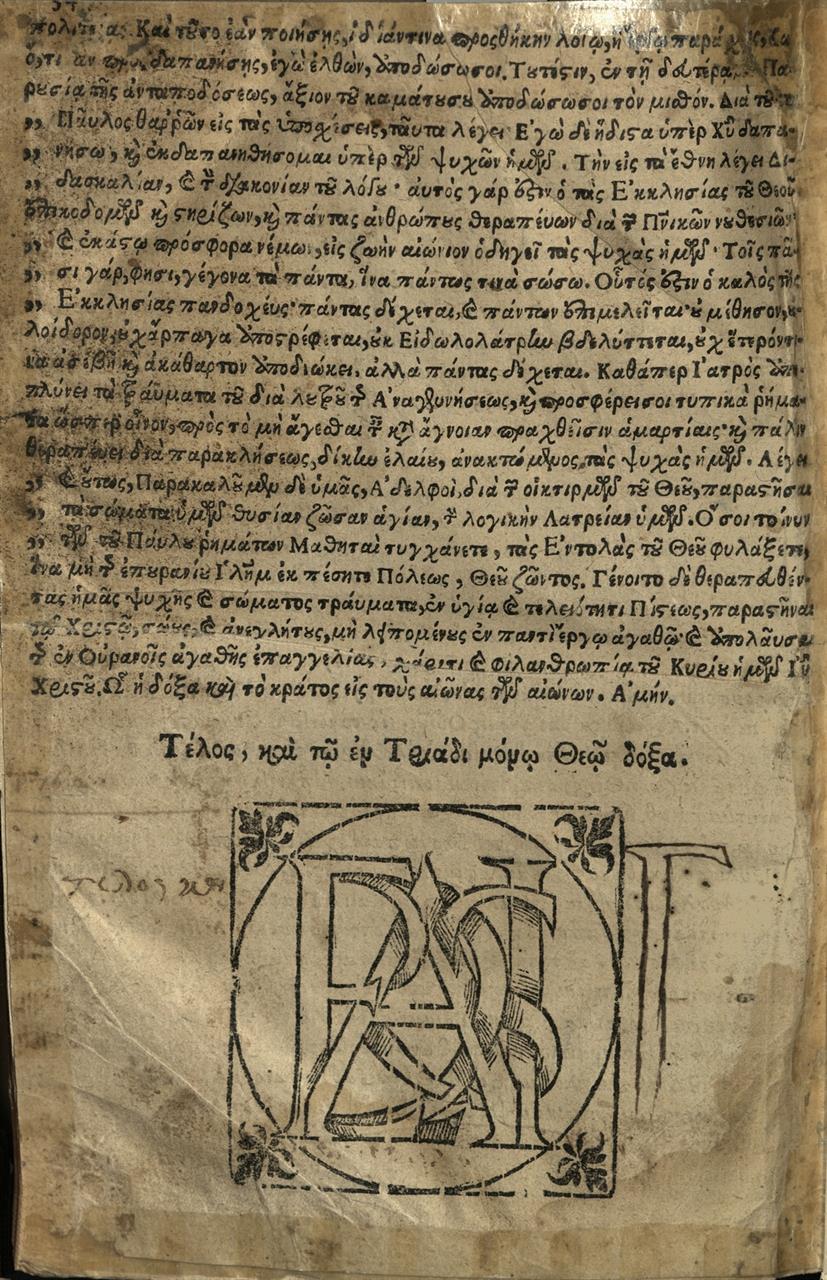 πολιτείας. Καὶ τοῦτο ἐὰν ποιήσῃς, ἰδιάντινα προσθήκην λοιῳ, ἢ παρά
ὅ, τι ἂν δαπανήσῃς, ἐγὼ ἐλθὼν, ἀποδώσω σοι. Τουτέστιν, ἐν τῇ δευτέρᾳ Πα-
ρουσίᾳ τῆς ἀνταποδόσεως, ἄξιον τοῦ καμάτου σου ἀποδώσω σοι τὸν μισθόν. Διὰ τοῦτο
„ Παῦλος θαῤῥῶν εἰς τὰς ὑποσχέσεις, ταῦτα λέγει Ἐγὼ δὲ ἥδιστα ὑπὲρ Χῦ δαπα-
„ νήσω, καὶ ἐκδαπανηθήσομαι ὑπὲρ τῶν ψυχῶν ἡμῶν. Τὴν εἰς τὰ ἔθνη λέγει Δι-
„ δασκαλίαν, καὶ τὴν διακονίαν τοῦ λόγου· αὐτὸς γάρ ἐστιν ὁ τὰς Ἐκκλησίας τοῦ Θεοῦ
ἐποικοδομῶν καὶ στηρίζων, καὶ πάντας ἀνθρώπους θεραπεύων διὰ τῶν Πνικῶν νουθεσιῶν
„ καὶ ἑκάστῳ πρόσφορα νέμων, εἰς ζωὴν αἰώνιον ὁδηγεῖ τὰς ψυχὰς ἡμῶν· Τοῖς πᾶ-
„ σι γάρ, φησι, γέγονα τὰ πάντα, ἵνα πάντως τινὰ σώσω. Οὗτός ἐστιν ὁ καλὸς τῆς
„ Ἐκκλησίας πανδοχέυς· πάντας δέχεται, καὶ πάντων ἐπιμελεῖται· οὐ μέθησον, οὐ
λοίδορον, οὐχ ἅρπαγα ἀποστρέφεται, οὐκ Εἰδωλολάτρην βδελύττεται, οὐχ ἕτερόν τι-
να ἀσεβῆ καὶ ἀκάθαρτον ἀποδιώκει, ἀλλὰ πάντας δέχεται. Καθάπερ Ἰατρὸς ἀπο-
πλύνει τὰ τραύματα τοῦ διὰ λουτροῦ τῆς Ἀναγεννήσεως, καὶ προσφέρει σοι τυπικὰ ῥήμα-
τα ὥσπερ οἶνον, πρὸς τὸ μὴ ἄγεσθαι τῶν κατ' ἄγνοιαν πραχθεῖσιν ἁμαρτίαις· καὶ πάλιν
θεραπεύει διὰ παρακλήσεως, δίκην ἐλαίου, ἀνακτώμενος τὰς ψυχὰς ἡμῶν. Λέγει
„ οὕτως, Παρακαλοῦμεν δὲ ὑμᾶς, Ἀδελφοὶ, διὰ τῶν οἰκτιρμῶν τοῦ Θεοῦ, παραστῆσαι
„ τὰ σώματα ὑμῶν θυσίαν ζῶσαν ἁγίαν, τὴν λογικὴν Λατρείαν ὑμῶν. Ὅσοι τοίνυν
„ τῶν τοῦ Παύλου ῥημάτων Μαθηταὶ τυγχάνετε, τὰς Ἐντολὰς τοῦ Θεοῦ φυλάξετε,
ἵνα μὴ τῆς ἐπουρανίου Ἱλῆμ ἐκπέσητε Πόλεως, Θεοῦ ζῶντος. Γένοιτο δὲ θεραπευθέν-
τας ἡμᾶς ψυχῆς καὶ σώματος τράυματα, ἐν ὑγίᾳ καὶ τελειότητι Πίστεως, παραστῆναι
τῷ Χριστῷ, σώους, καὶ ἀνεγλήτους, μὴ λειπομένους ἐν παντὶ ἔργῳ ἀγαθῷ· καὶ ἀπολαῦσαι
τῆς ἐν Οὐρανοῖς ἀγαθῆς ἐπαγγελίας, χάριτι καὶ φιλανθρωπίᾳ τοῦ Κυρίου ἡμῶν Ἰῦ
Χριστοῦ. ᾯ ἡ δόξα καὶ τὸ κράτος εἰς τοὺς αἰῶνας τῶν αἰώνων. Ἀμήν.
Τέλος, καὶ τῷ ἐν Τριάδι μόνῳ Θεῷ δόξα.
τελος και